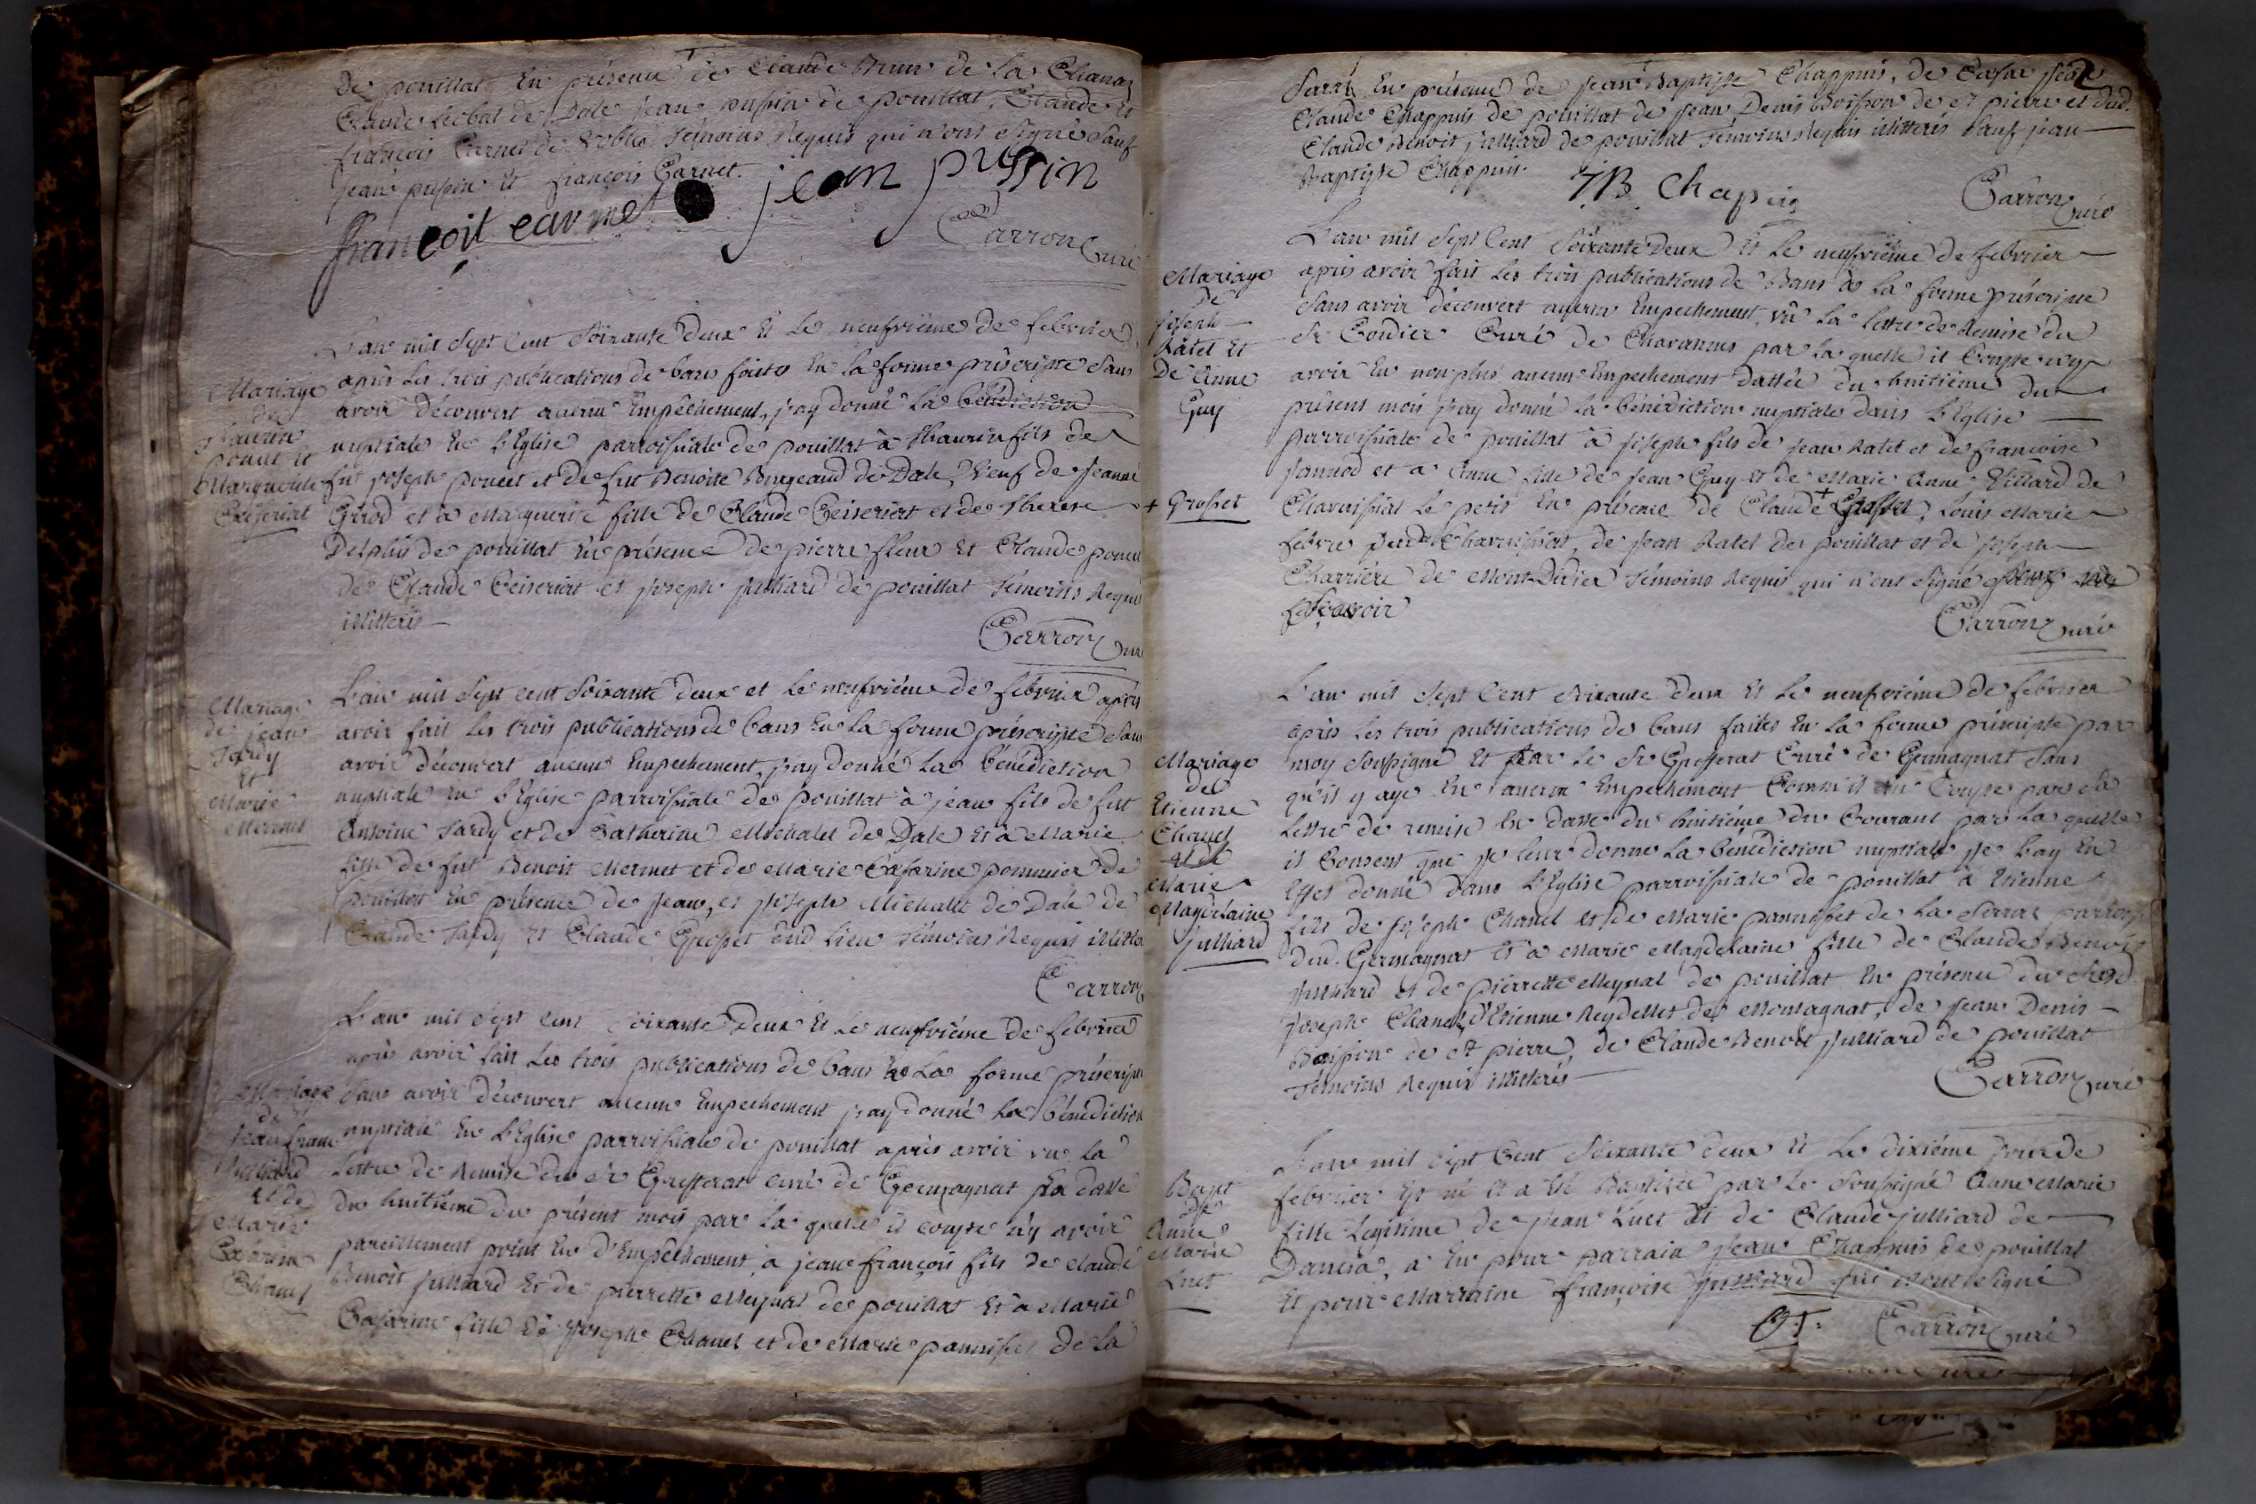 De pouillat En présence de Claude Brun de la Chanaz
Claude Léobat de Dale jean pussin de pouillat, Claude Et
françois Carnet de témoins Requis qui n'ont signé sauf
jean pussin Et françois Carnet.
françoit carmet jean pussin
Carron Curé
L'an mil sept Cent Soixante deux Et Le neufvième de febvrier
Mariage
de
Thaurin
poncet et
Marguerite
Ceiseriat
après Les trois publications de bans faites En La forme préscripte Sans
avoir découvert aucun Empêchement, j'ay donné La bénédiction
nuptiale En L'Eglise parroissiale de pouillat à Thaurin fils de
fut joseph poncet et de fut Benoite de Dale, Veuf de Jeanne
Girod et à Marguerite fille de Claude Ceiseriat et de Therese
de pouillat En présence de pierre fleur Et Claude poncet
de Claude Ceiseriat et joseph julliard de pouillat témoins Requis
illitterés
Carron Curé
Mariage
de jean
Tardy
Et
Marie
Mermet
L'an mil sept cent soixante deux et le neufvième de febvrier après
avoir fait Les trois publications de bans En La forme préscripte Sans
avoir découvert aucun Empechement, j'ay donné La bénédiction
nuptiale En L'Eglise parroissiale de pouillat à jean fils de fut
Antoine Tardy et de Catherine Michalet de Dale Et à Marie
fille de fut Benoit Mermet et de Marie Catarine pommier de
pouillat En présence de jean, et joseph Michalet de Dale de
Claude Tardy Et Claude Grosset dud lieu témoins Requis illitterés
Carron
L'an mil sept cent soixante deux Et Le neufvième de febvrier
après avoir fait Les trois publications de bans La forme préscripte
Mariage
de
jean franc
julliard
et de
Marie
Catarine
Chanel
sans avoir découvert aucun Empechement j'ay donné La bénédiction
nuptiale En L'Eglise parroissiale de pouillat après avoir vu La
Lettre de Remise du Sr Grosserat curé de Germagnat En datte
du huitiéme du présent mois par La quelle il conste n'y avoir
pareillement point Eu d'Empêchement, à jean françois fils de claude
Benoit julliard Et de pierrette Meynal de pouillat Et à Marie
Catarine fille de joseph Chanel et de Marie pannisset de La
Serraz En présence de jean Baptiste Chappuis, de
Claude Chappuis de pouillat de jean Denis Boisson de St pierre et dud.
Claude Benoit julliard de pouillat témoins Requis illitterés sauf jean
Baptiste Chappuis.
JB Chapuis
Carron Curé
Mariage
De
joseph
Ratel Et
De Anne
Guy
L'an mil sept Cent Soixante deux Et Le neufvième de febvrier
après avoir fait Les trois publications de Bans La forme préscripte
Sans avoir découvert aucun Empechement, vû La lettre de Remise du
Sr Gondier Curé de Chavannes par La quelle il Conste n'y
avoir Eu non plus aucun Empechement dattée du huitiéme du
présent mois j'ay donné La bénédiction nuptiale dans L'Eglise
parroissiale de pouillat à joseph fils de jean Ratel et de françoise
jannod et à Anne fille de jean Guy Et de Marie Anne Villard de
+ Grosset
Chavuissiat Le petit En présence de Claude + Louis Marie
febvre dud Chavuissiat, de jean Ratel de pouillat et de joseph
Charriére de Mont-Didier témoins Requis qui n'ont signé
scavoir
Carron Curé
Mariage
de
Etienne
Chanel
et de
Marie
Magdelaine
julliard
L'an mil sept Cent soixante deux Et Le neufvième de febvrier
après Les trois publications de bans faites En La forme préscripte par
moy Soussigné Et par Le Sr Grosserat Curé de Germagnat Sans
qu'il y aye Eu aucun Empechement Comm'il Conste par sa
Lettre de remise En datte du huitiéme du Courant par La quelle
il Consent que je leur donne La bénédiction nuptiale je L'ay En
Effet donné dans L'Eglise parroissiale de pouillat à Etienne
fils de joseph Chanel Et de Marie pannisset de La Serraz parroisse
dud. Germagnat Et à Marie Magdelaine fille de Claude Benoit
julliard et de pierrette Meynal de pouillat En présence du susd
joseph Chanel, d'Etienne Reydellet de Montagnat, de jean Denis
Boisson de St pierre, de Claude Benoit julliard de pouillat
témoins Requis illitterés
Carron Curé
Bapt
de
Anne
Marie
Luct
L'an mil sept Cent Soixante deux Et Le dixiéme jour de
febvrier Est né Et a Eté Baptisée par Le Soussigné Anne Marie
fille Légitime de jean Luct Et de Claude julliard de
Dancia, a Eu pour parrain jean Chappuis de pouillat
Et pour Marraine françoise julliard qui n'ont signé
Carron Curé